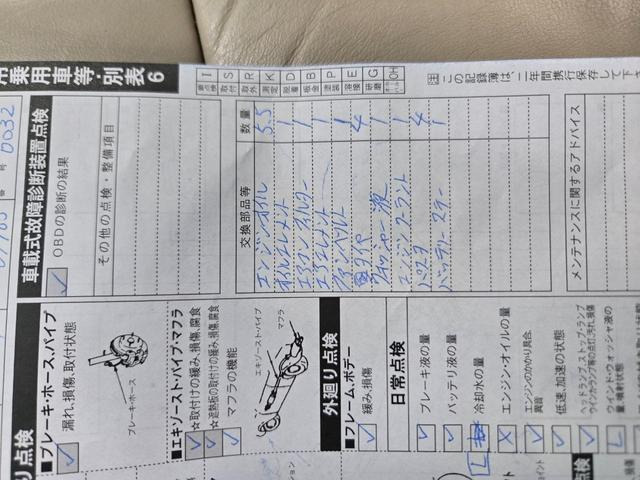 用乗用車等・別表6
I S R K D B P E G OH
点検 取付 取外 測定 脱着 板金 塗装 溶接 研磨
注 この記録簿は、二年間携行保存して下さ
0032
車載式故障診断装置点検
✓ OBDの診断の結果
その他の点検・整備項目
交換部品等 数量
エンジンオイル 5.5
オイルエレメント 1
エアコンフィルター 1
エアエレメント 1
ファンベルト 1
タイヤ 4
ウォッシャー液 1
エンジンクーラント 1
4
バッテリー 1
メンテナンスに関するアドバイス
り点検
■ブレーキ・ホース、パイプ
✓ 漏れ、損傷、取付状態
ブレーキ・ホース
■エキゾースト・パイプ、マフラ
✓ ☆取付けの緩み、損傷、腐食
✓ ☆遮熱板の取付けの緩み、損傷、腐食
✓ マフラの機能
エキゾースト・パイプ
マフラ
外廻り点検
■フレーム、ボデー
✓ 緩み、損傷
日常点検
✓ ブレーキ液の量
✓ バッテリ液の量
L 冷却水の量
X エンジン・オイルの量
✓ エンジンのかかり具合、異音
✓ 低速、加速の状態
✓ ヘッドランプ、ストップ・ランプ、ウインカランプ等の点灯、汚れ、損傷
L ウインド・ウォッシャ液の量、噴射状態